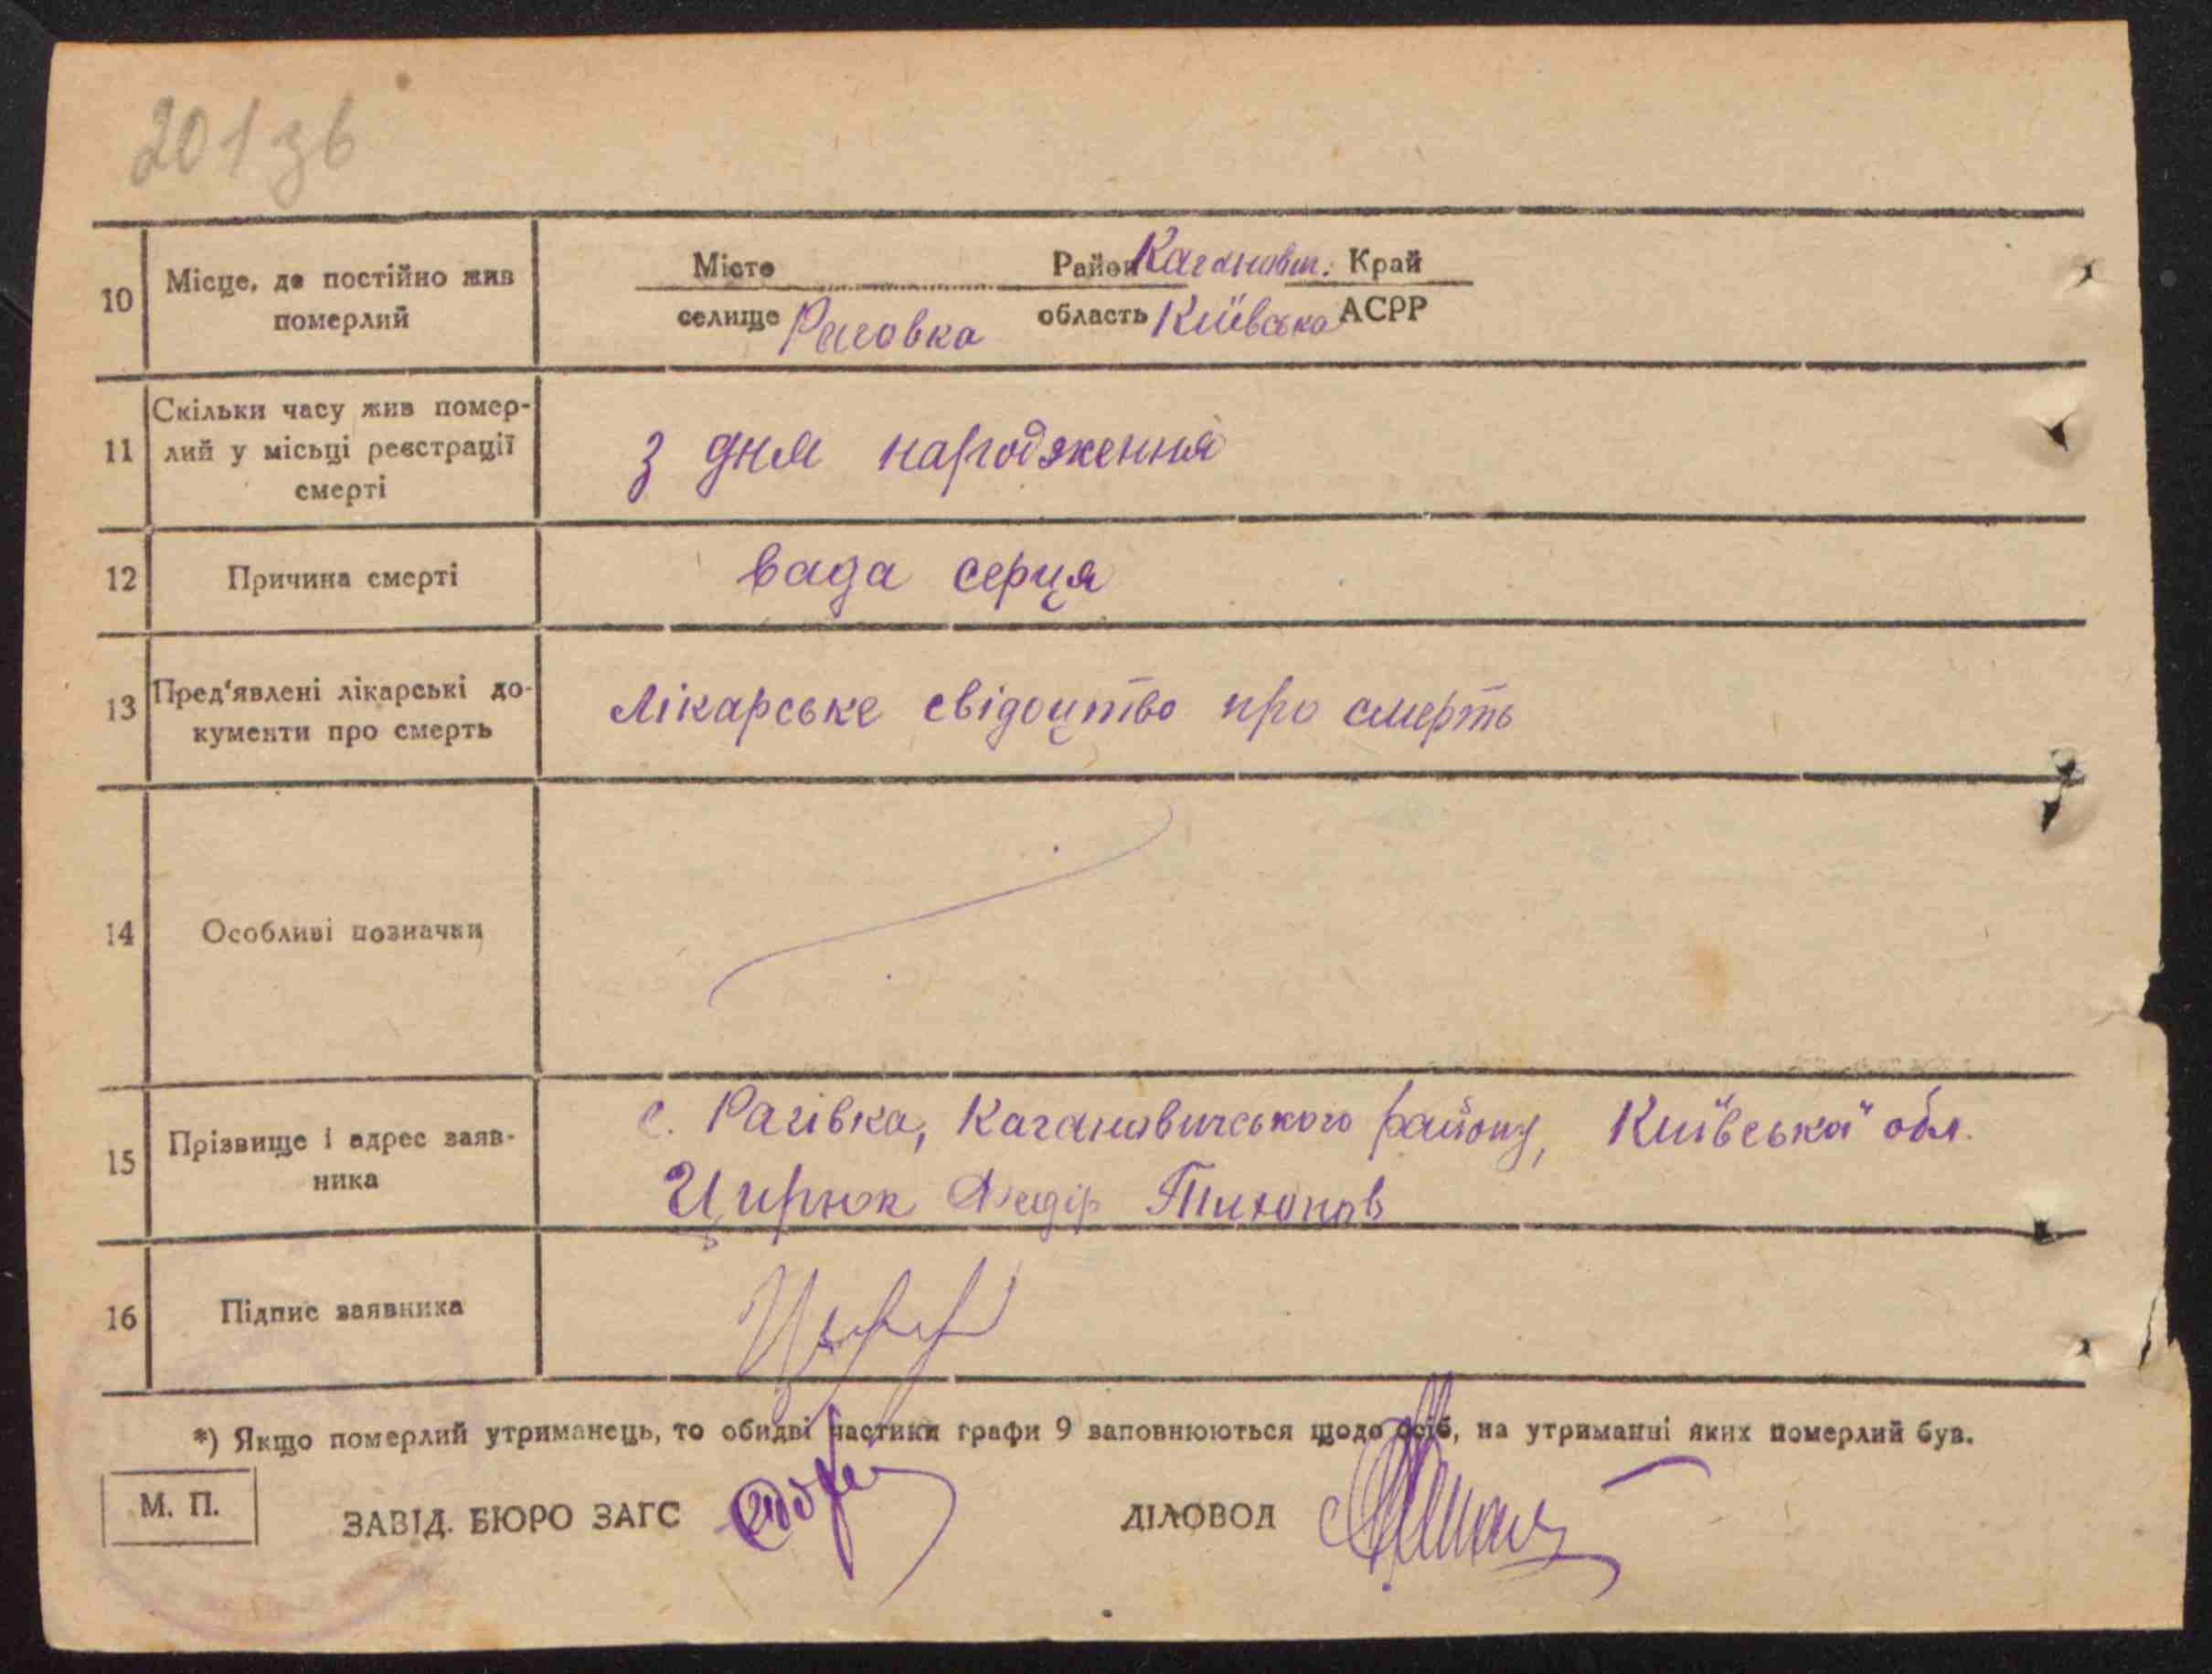 201зв
10 Місце, де постійно жив Місто Район Каганович. Край
померлий селище Раговка область Київська АСРР
Скільки часу жив помер-
11 лий у місьці реєстрації з дня народження
смерті
12 Причина смерті вада серця
13 Пред'явлені лікарські до- лікарське свідоцтво про смерть
кументи про смерть
14 Особливі позначки
15 Прізвище і адрес заяв- с. Рагівка, Кагановичського району, Київської обл.
ника Цирюк Федір Тихонов
16 Підпис заявника
*) Якщо померлий утриманець, то обидві частики графи 9 заповнюються щодо осіб, на утриманні яких померлий був.
М. П. ЗАВІД. БЮРО ЗАГС ДІЛОВОД